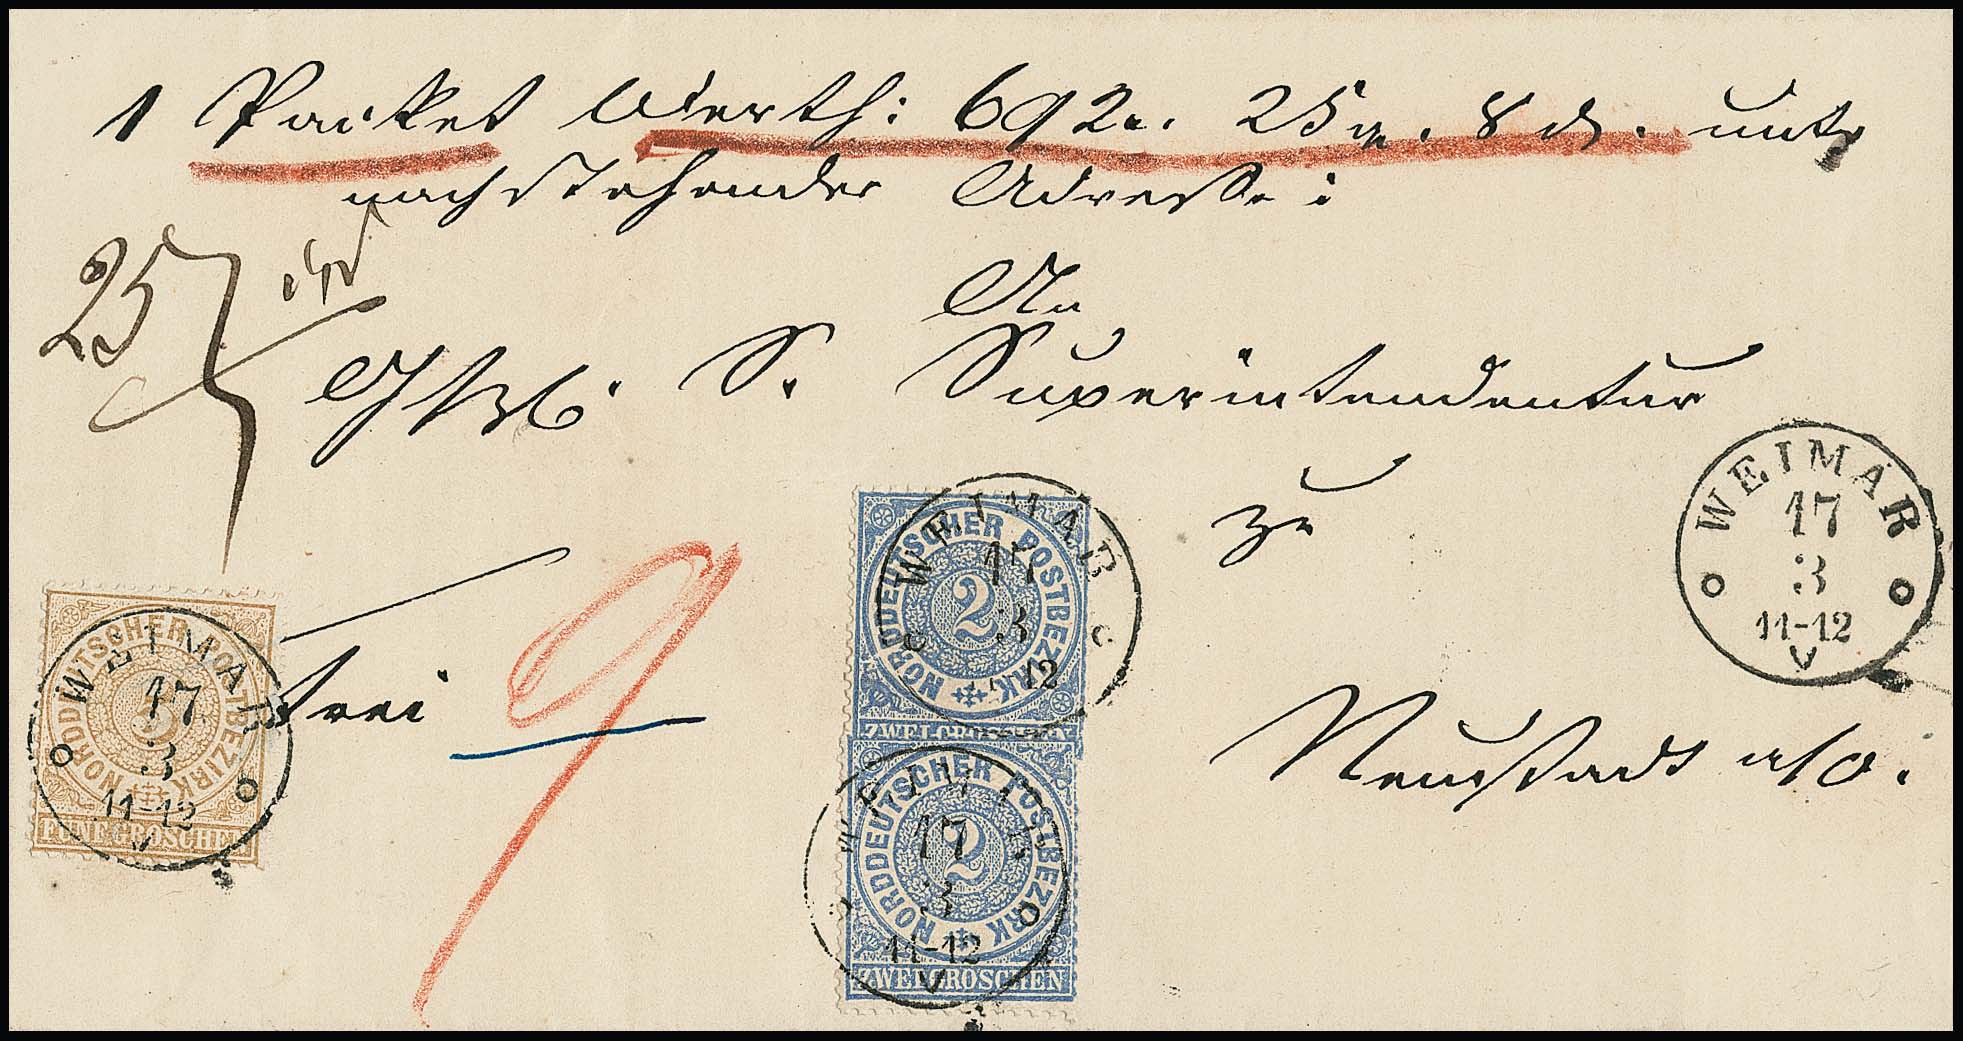 1 Packet Werth: 692 r. 25 gr. 8 d. unter
nachstehender Adresse:
An
S. Superintendentur
zu
Neustadt a/O.
25
frei
9
WEIMAR
17
3
11-12
V
NORDDEUTSCHER POSTBEZIRK
2
ZWEI GROSCHEN
WEIMAR
17
3
12
NORDDEUTSCHER POSTBEZIRK
2
ZWEI GROSCHEN
WEIMAR
17
3
11-12
V
NORDDEUTSCHER POSTBEZIRK
5
FÜNF GROSCHEN
WEIMAR
17
3
11-12
V